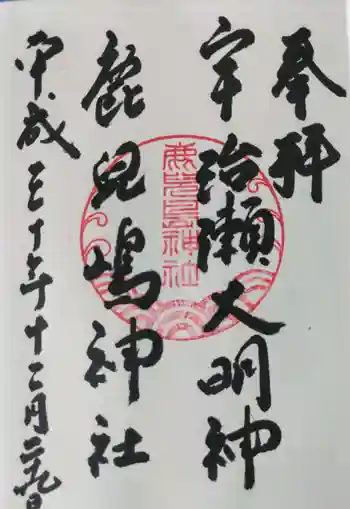 奉拝
宇治瀬大明神
鹿児嶋神社
平成三十年十二月二九日
鹿児島神社